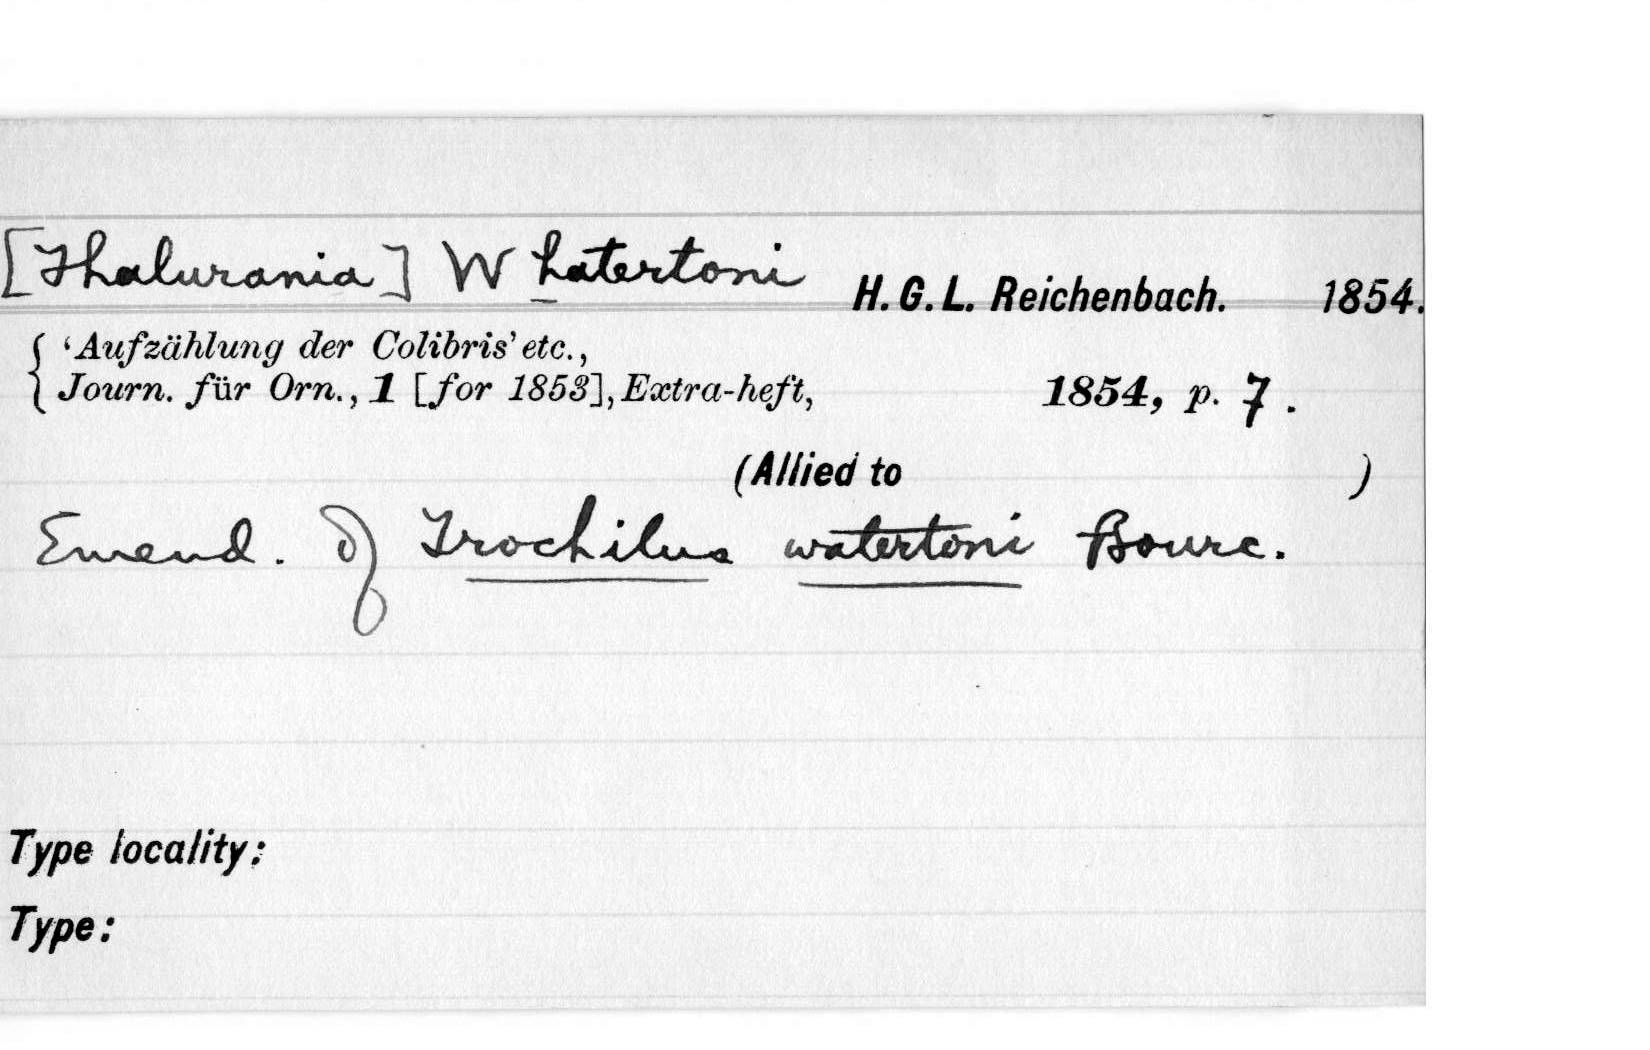 [Thalurania] Whatertoni H. G. L. Reichenbach. 1854.
'Aufzählung der Colibris' etc.,
Journ. für Orn., 1 [for 1853], Extra-heft, 1854, p. 7.
(Allied to )
Emend. of Trochilus watertoni Bourc.
Type locality:
Type: